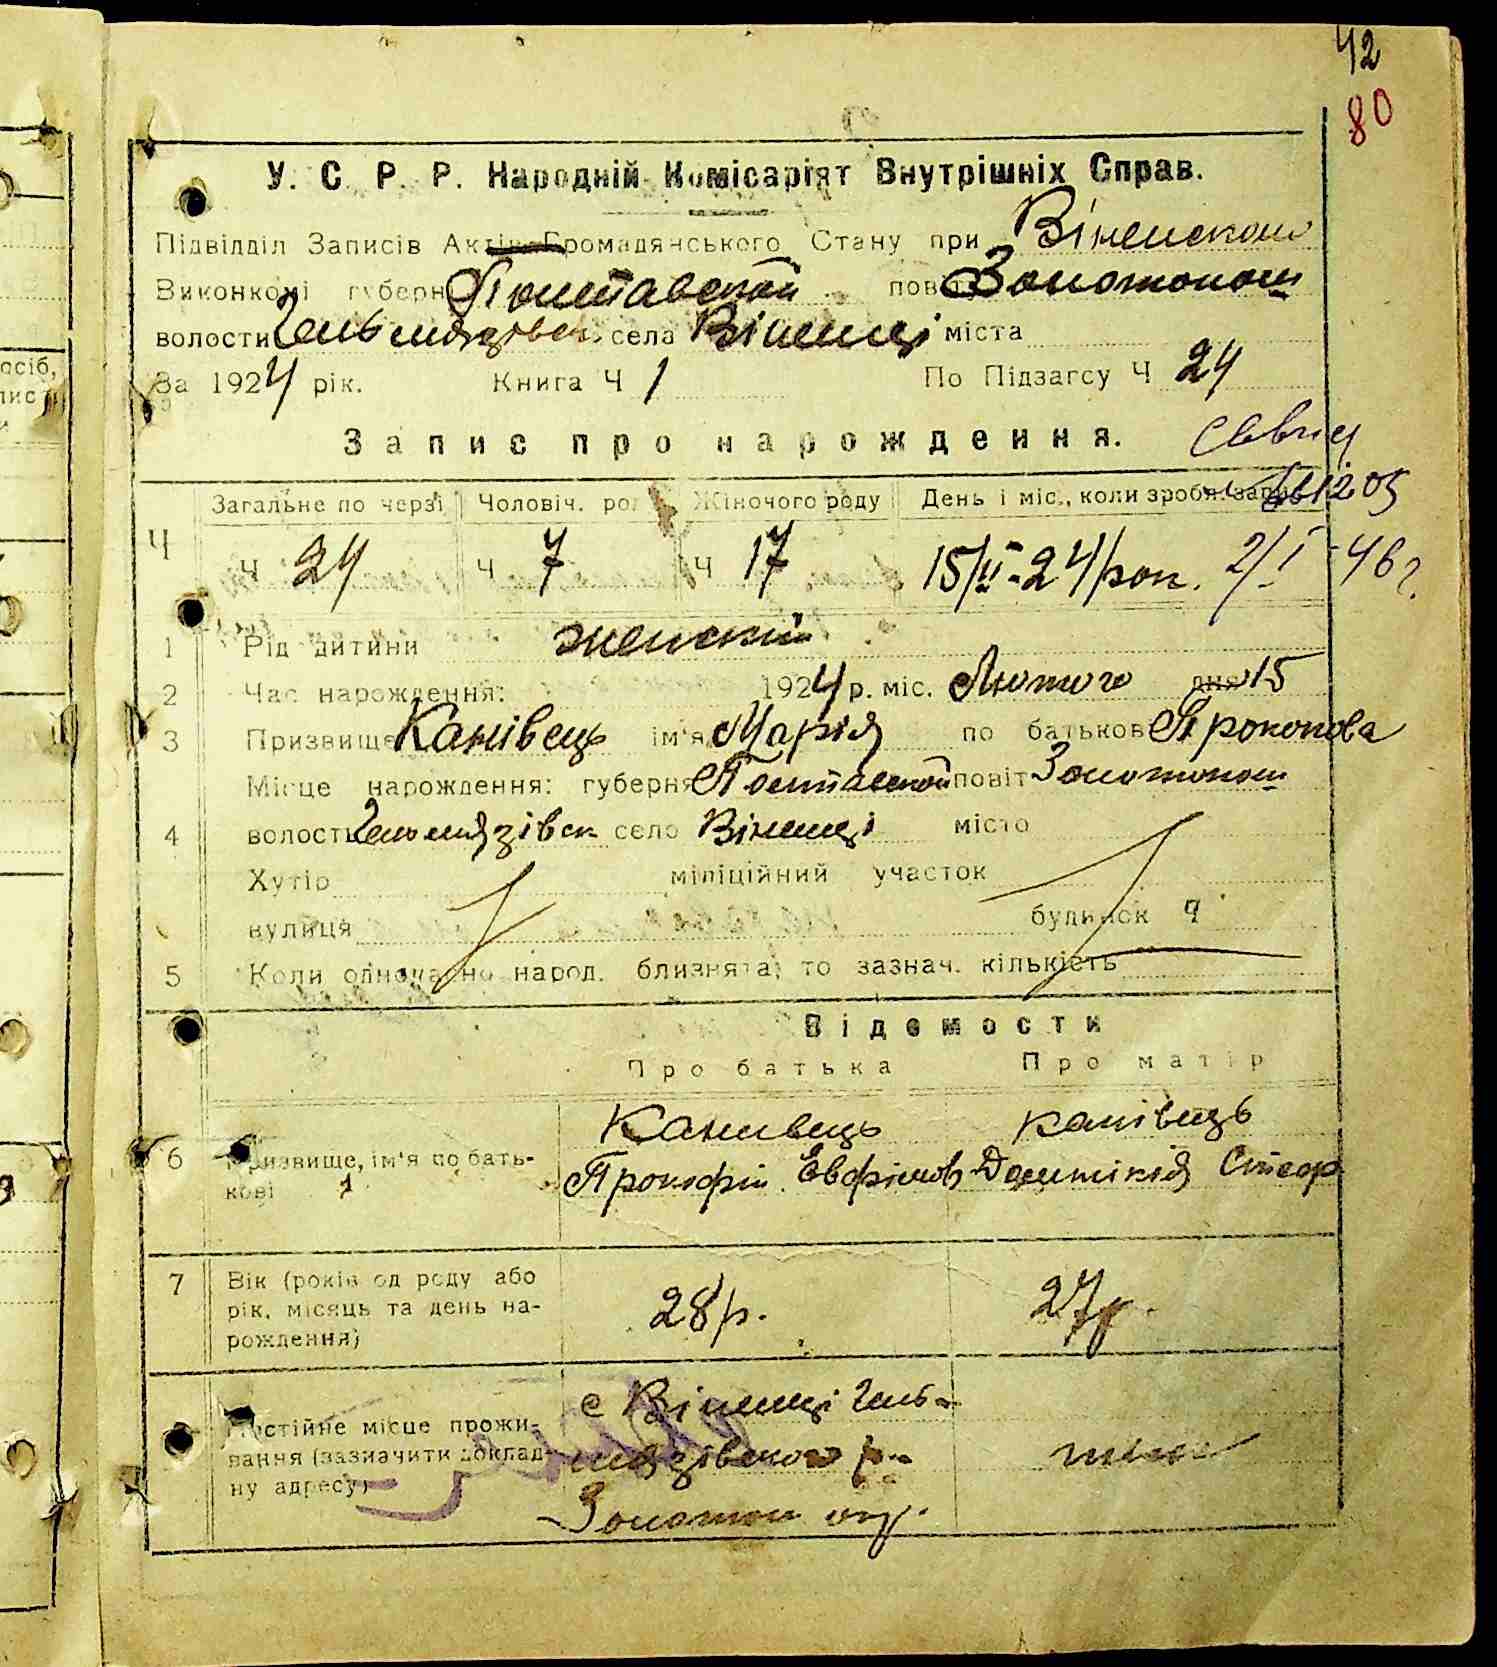 42
80
У. С. Р. Р. Народній Комісаріят Внутрішніх Справ.
Підвідділ Записів Актів Громадянського Стану при Віненском
Виконкомі губерн Полтавской пов Золотонош
волости Гельмязівск села Вінинці міста
За 1924 рік. Книга Ч 1 По Підзагсу Ч 24
Запис про нарождення.
Загальне по черзі Чоловіч. роду Жіночого роду День і міс., коли зробл. запис 1205
Ч Ч 24 Ч 7 Ч 17 15/II-24/рок. 2/I-46 г.
1 Рід дитини женский
2 Час нарождення: 1924 р. міс. Лютого дня 15
3 Призвище Канівець ім'я Марія по батькові Прокопова
Місце нарождення: губерня Полтавской повіт Золотонош
4 волость Гельмязівск село Вінинці місто
Хутір міліційний участок
вулиця будинок Ч
5 Коли одночасно народ. близнята, то зазнач. кількість
Відомости
Про батька Про матір
Канивець Канівець
6 Призвище, ім'я по бать- Прокофій Евфимов Домникія
кові 1
7 Вік (років од роду або
рік, місяць та день на- 28 р. 27 р.
рождення)
с Вінинці Гель-
Постійне місце прожи-
вання (зазначити доклад- мязівского р-
ну адресу)
Золотон окр.